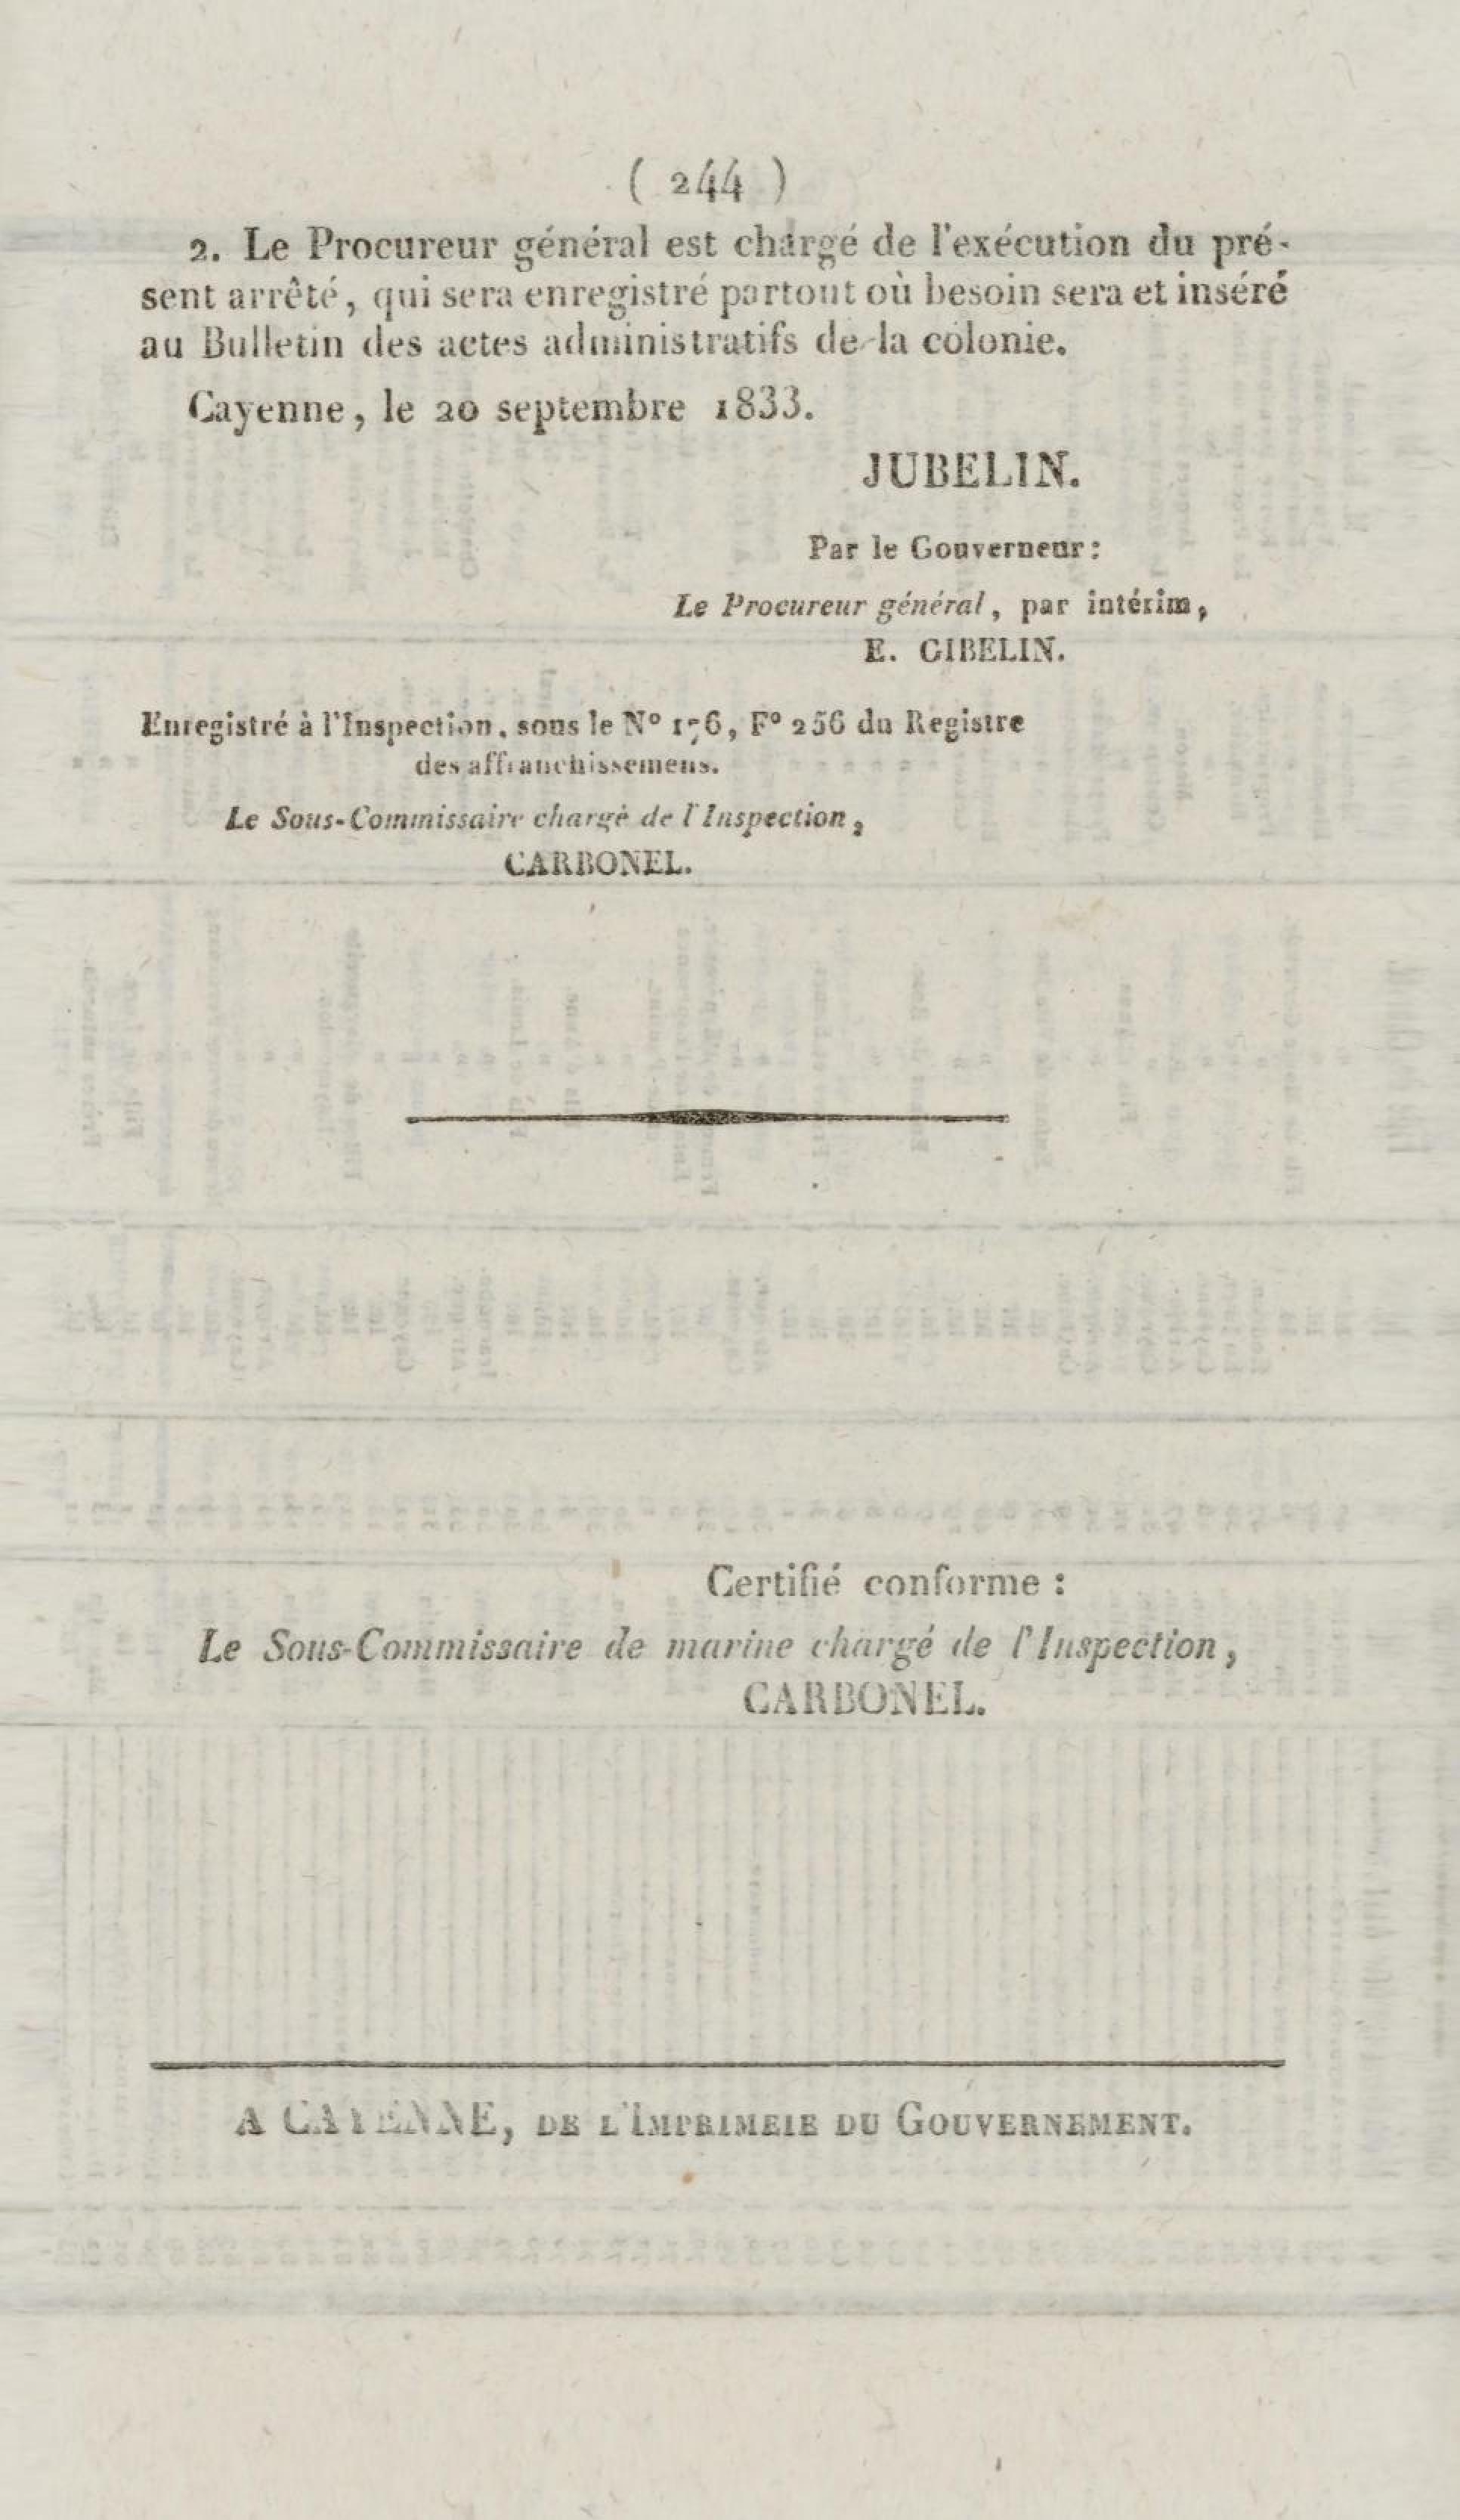 ( 244 )
2. Le Procureur général est chargé de l'exécution du pré-
sent arrêté, qui sera enregistré partout où besoin sera et inséré
au Bulletin des actes administratifs de la colonie.
Cayenne, le 20 septembre 1833.
JUBELIN.
Par le Gouverneur:
Le Procureur général, par intérim,
E. GIBELIN.
Enregistré à l'Inspection, sous le N° 176, F° 256 du Registre
des affranchissemens.
Le Sous-Commissaire chargé de l'Inspection,
CARBONEL.
Certifié conforme :
Le Sous-Commissaire de marine chargé de l'Inspection,
CARBONEL.
A CAYENNE, DE L'IMPRIMEIE DU GOUVERNEMENT.